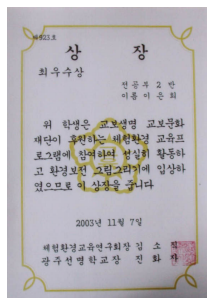 제923호
상 장
최우수상
전공부 2 반
이름 이 은 희
위 학생은 교보생명 교보문화
재단이 후원하는 체험환경 교육프
로그램에 참여하여 성실히 활동하
고 환경보전 그림그리기에 입상하
였으므로 이 상장을 줍니다
2003년 11월 7일
체험환경교육연구회장 김 소
광주선명학교장 진 화